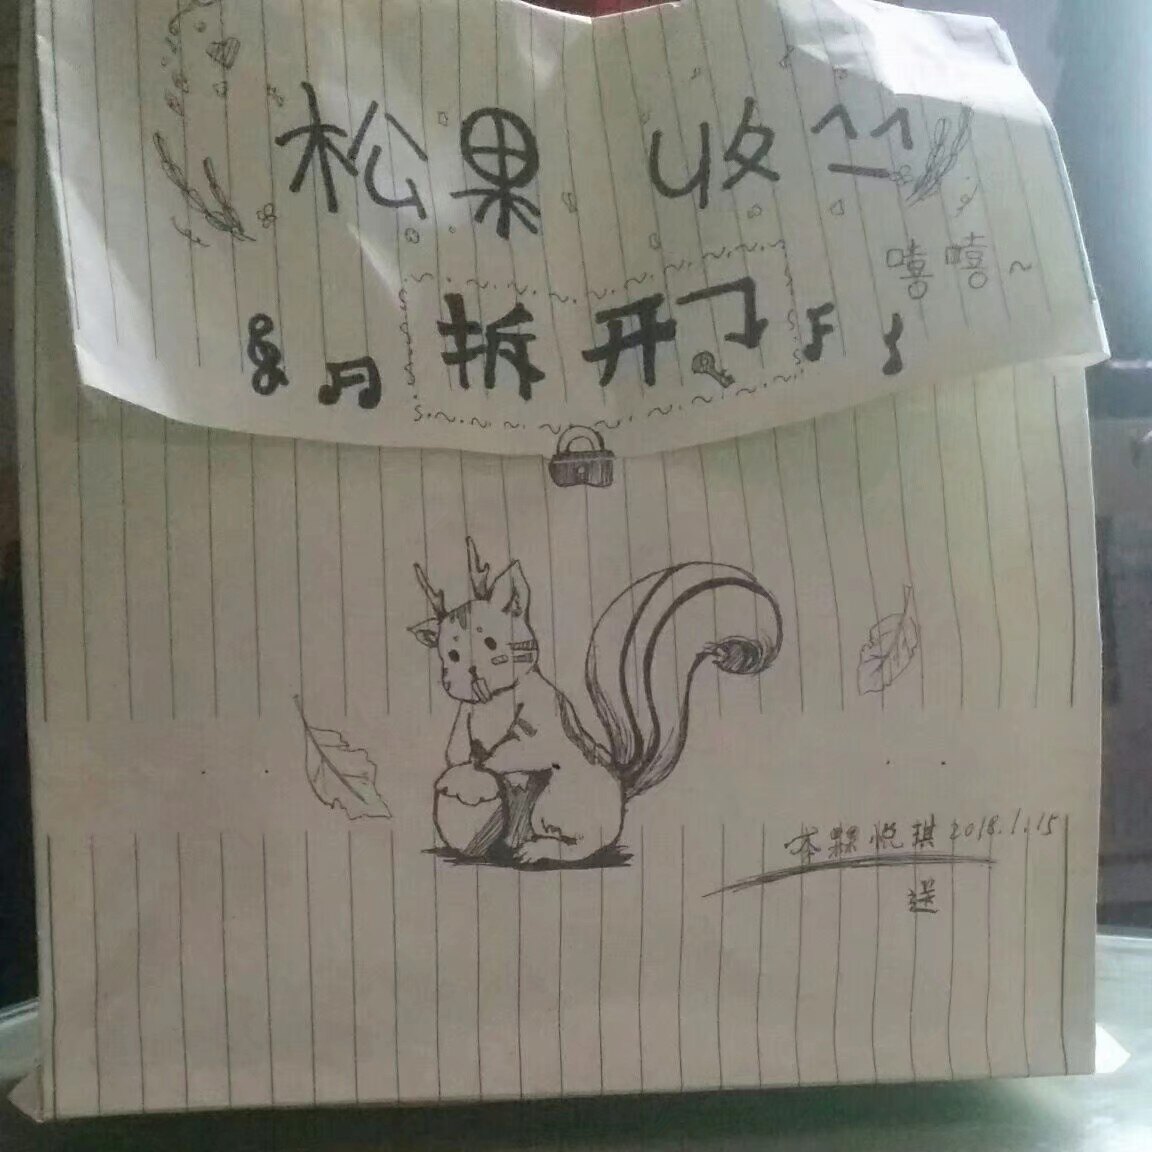 松果 收^_^
嘻嘻~
拆开了
悦琪 2018.1.15
送